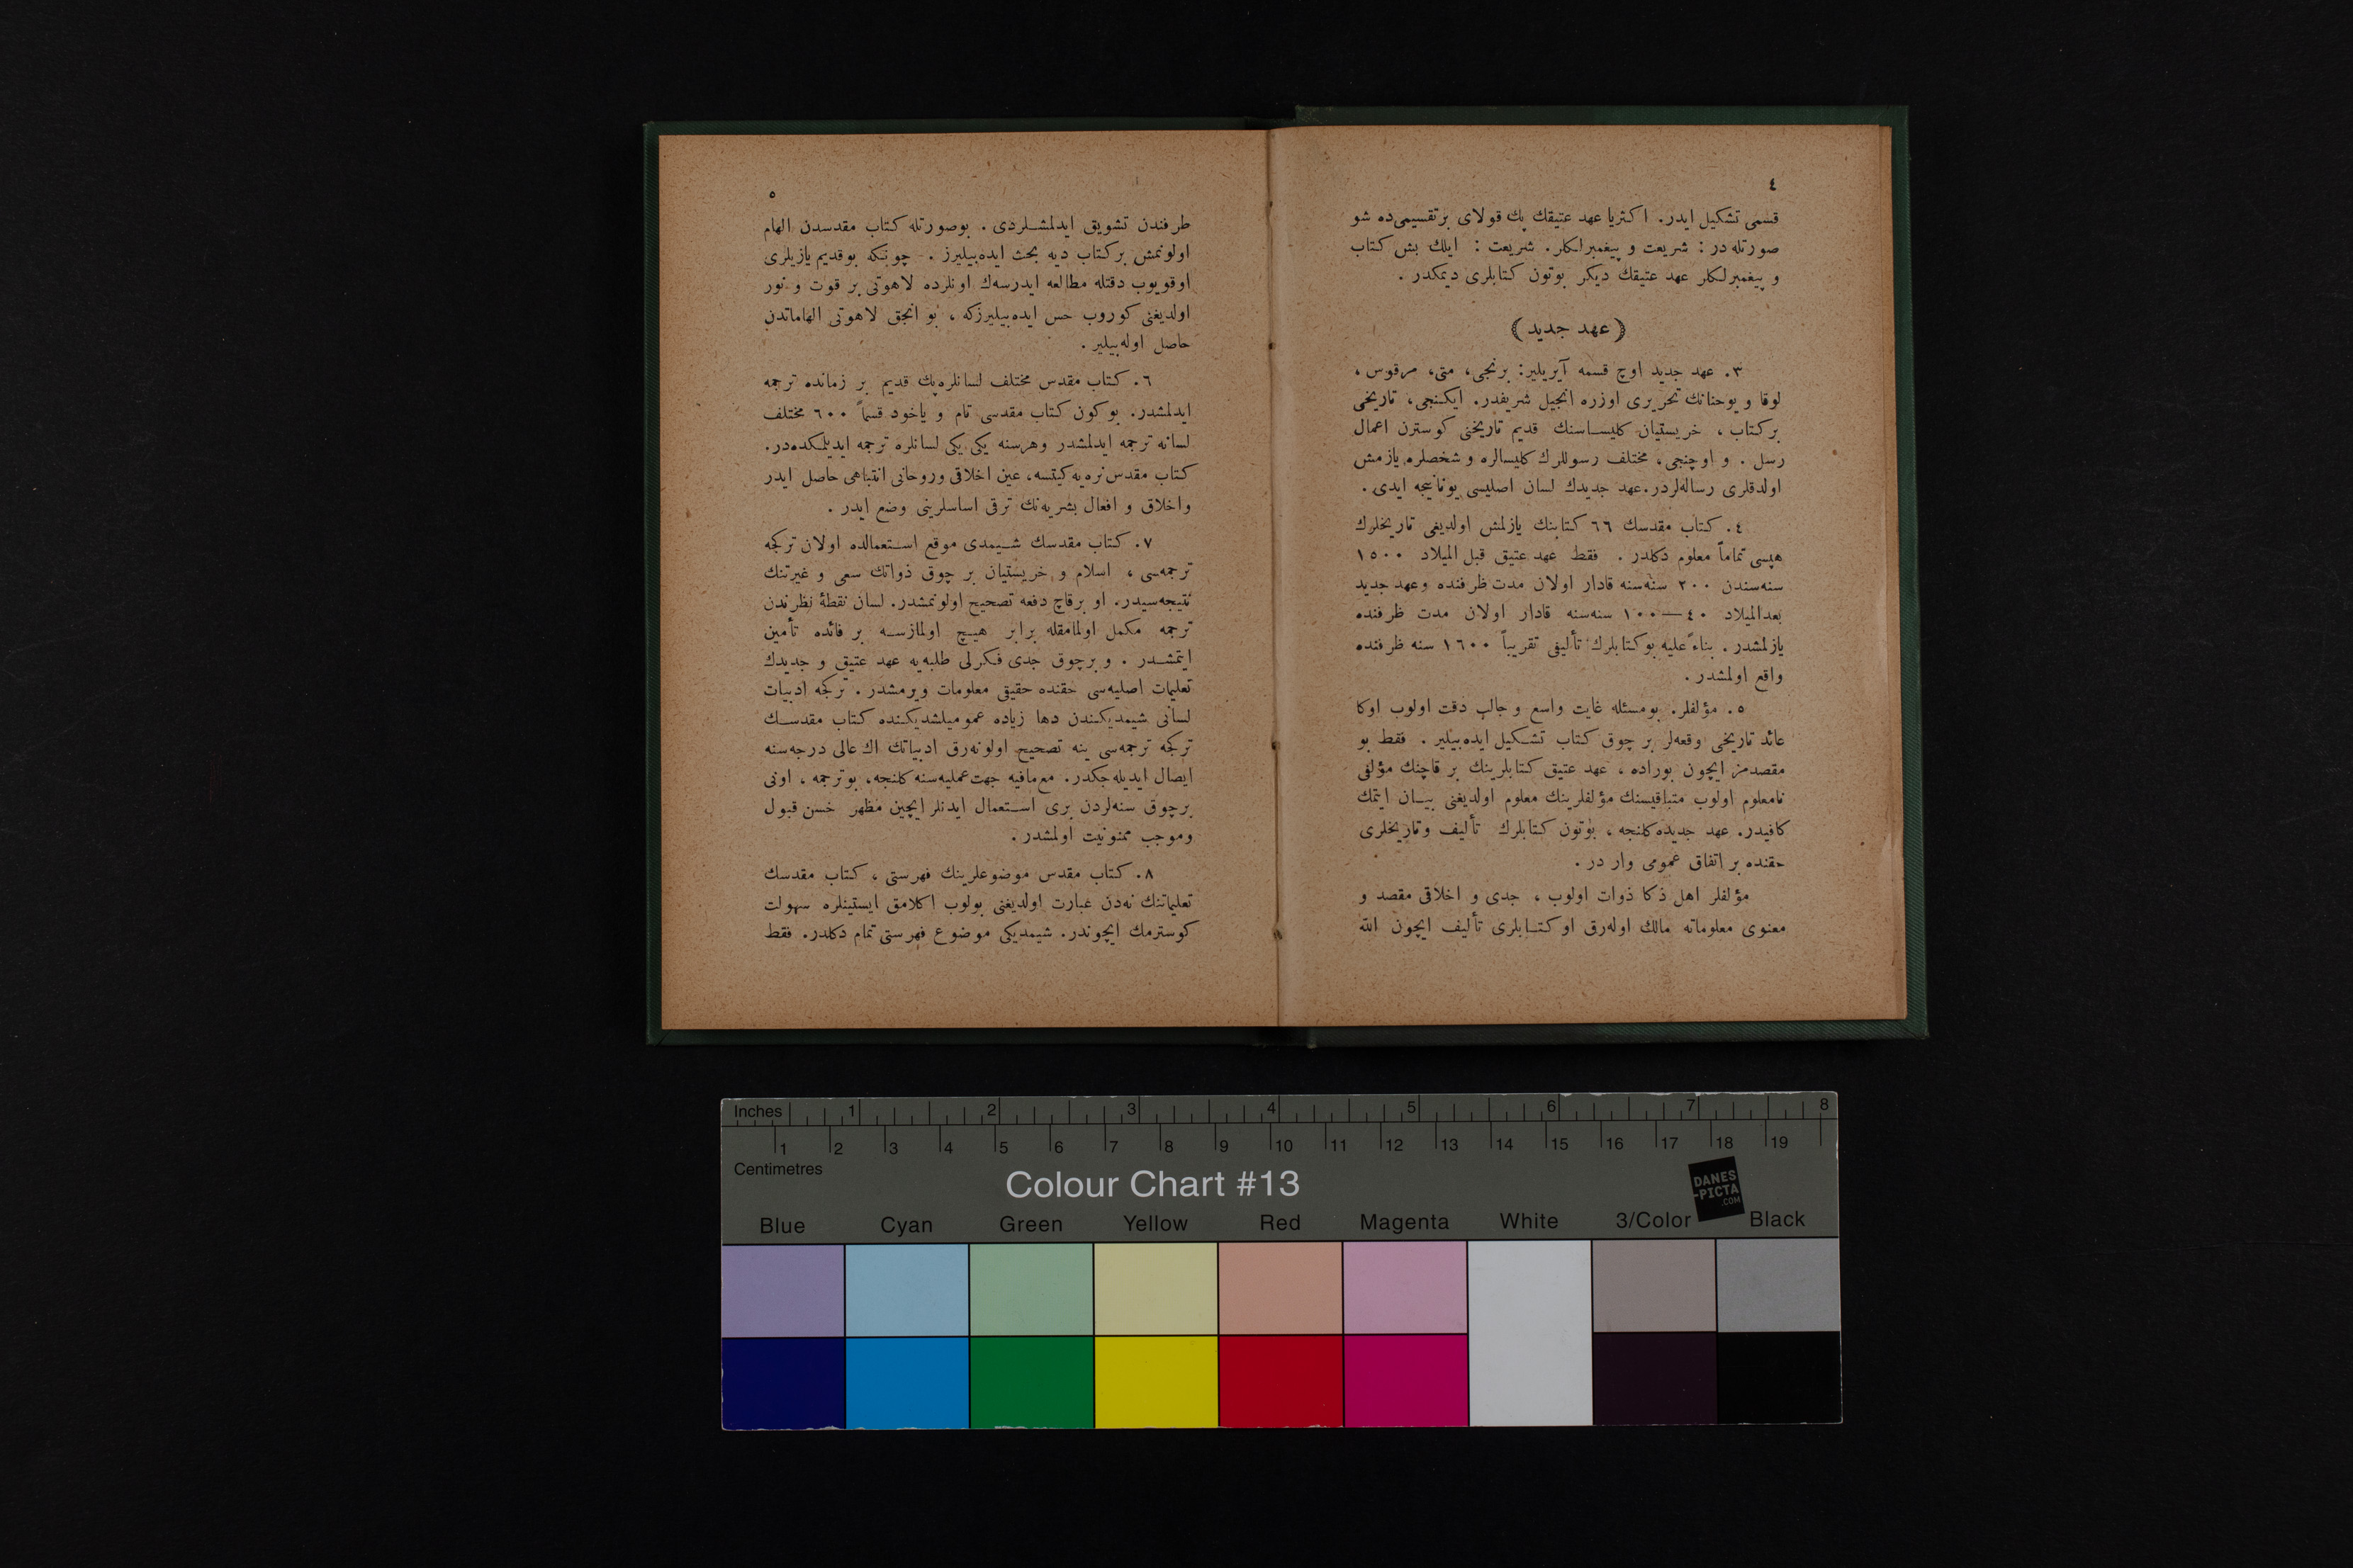 ٤
قسمی تشکیل ایدر. اکثریا عهد عتیقك پك قولای بر تقسیمی ده شو
صورتله در : شریعت و پیغمبرلکلر. شریعت : ایلك بش کتاب
و پیغمبرلکلر عهد عتیقك دیکر بوتون کتابلری دیمکدر .
(عهد جدید)
۳. عهد جدید اوچ قسمه آیریلیر: برنجی، متی، مرقوس،
لوقا و یوحنانك تحریری اوزره انجیل شریفدر. ایکنجی، تاریخی
برکتاب ، خریستیان کلیساسنك قدیم تاریخنی کوسترن اعمال
رسل . و اوچنجی، مختلف رسوللرك کلیسالره و شخصلره یازمش
اولدقلری رسالهلردر. عهد جدیدك لسان اصلیسی یونانیجه ایدی .
٤. کتاب مقدسك ٦٦ کتابنك یازلمش اولدیغی تاریخلرك
هپسی تماماً معلوم دکلدر . فقط عهد عتیق قبل المیلاد ١٥٠٠
سنهسندن ٢٠٠ سنهسنه قادار اولان مدت ظرفنده و عهد جدید
بعدالمیلاد ٤٠—١٠٠ سنهسنه قادار اولان مدت ظرفنده
یازلمشدر . بناءً علیه بو کتابلرك تألیفی تقریباً ١٦٠٠ سنه ظرفنده
واقع اولمشدر .
٥. مؤلفلر. بومسئله غایت واسع و جالب دقت اولوب اوکا
عائد تاریخی وقعهلر بر چوق کتاب تشکیل ایدهبیلیر . فقط بو
مقصدمز ایچون بوراده ، عهد عتیق کتابلرینك بر قاچنك مؤلفی
نامعلوم اولوب متباقیسنك مؤلفلرینك معلوم اولدیغنی بیان ایتمك
کافیدر. عهد جدیده کلنجه ، بوتون کتابلرك تألیف و تاریخلری
حقنده بر اتفاق عمومی وار در .
مؤلفلر اهل ذکا ذوات اولوب ، جدی و اخلاقی مقصد و
معنوی معلوماته مالك اولهرق او کتابلری تألیف ایچون الله
٥
طرفندن تشویق ایدلمشلردی . بوصورتله کتاب مقدسدن الهام
اولونمش برکتاب دیه بحث ایدهبیلیرز . چونکه بوقدیم یازیلری
اوقویوب دقتله مطالعه ایدرسهك اونلرده لاهوتی بر قوت و نور
اولدیغنی کوروب حس ایدهبیلیرزکه ، بو انجق لاهوتی الهاماتدن
حاصل اولهبیلیر .
٦. کتاب مقدس مختلف لسانلره پك قدیم بر زمانده ترجمه
ایدلمشدر. بوکون کتاب مقدسی تام و یاخود قسماً ٦٠٠ مختلف
لسانه ترجمه ایدلمشدر وهرسنه یکی یکی لسانلره ترجمه ایدیلمکدهدر.
کتاب مقدس نرهیه کیتسه، عین اخلاقی وروحانی انتباهی حاصل ایدر
واخلاق و افعال بشریهنك ترقی اساسلرینی وضع ایدر .
۷. کتاب مقدسك شیمدی موقع استعمالده اولان ترکجه
ترجمهسی ، اسلام و خریستیان بر چوق ذواتك سعی و غیرتنك
نتیجهسیدر. او برقاچ دفعه تصحیح اولونمشدر. لسان نقطهٔ نظرندن
ترجمه مکمل اولمامقله برابر هیچ اولمازسه بر فائده تأمین
ایتمشدر . و برچوق جدی فکرلی طلبهیه عهد عتیق و جدیدك
تعلیمات اصلیهسی حقنده حقیقی معلومات ویرمشدر . ترکجه ادبیات
لسانی شیمدیکندن دها زیاده عمومیلشدیکنده کتاب مقدسك
ترکجه ترجمهسی ینه تصحیح اولونهرق ادبیاتك اك عالی درجهسنه
ایصال ایدیلهجکدر. مع مافیه جهت عملیهسنه کلنجه، بوترجمه ، اونی
برچوق سنهلردن بری استعمال ایدنلر ایچین مظهر حسن قبول
وموجب ممنونیت اولمشدر .
۸. کتاب مقدس موضوعلرینك فهرستی ، کتاب مقدسك
تعلیماتنك نهدن عبارت اولدیغنی بولوب اکلامق ایستینلره سهولت
کوسترمك ایچوندر. شیمدیکی موضوع فهرستی تمام دکلدر. فقط
Inches 1 2 3 4 5 6 7 8
1 2 3 4 5 6 7 8 9 10 11 12 13 14 15 16 17 18 19
Centimetres
Colour Chart #13
DANES
-PICTA
.COM
Blue Cyan Green Yellow Red Magenta White 3/Color Black